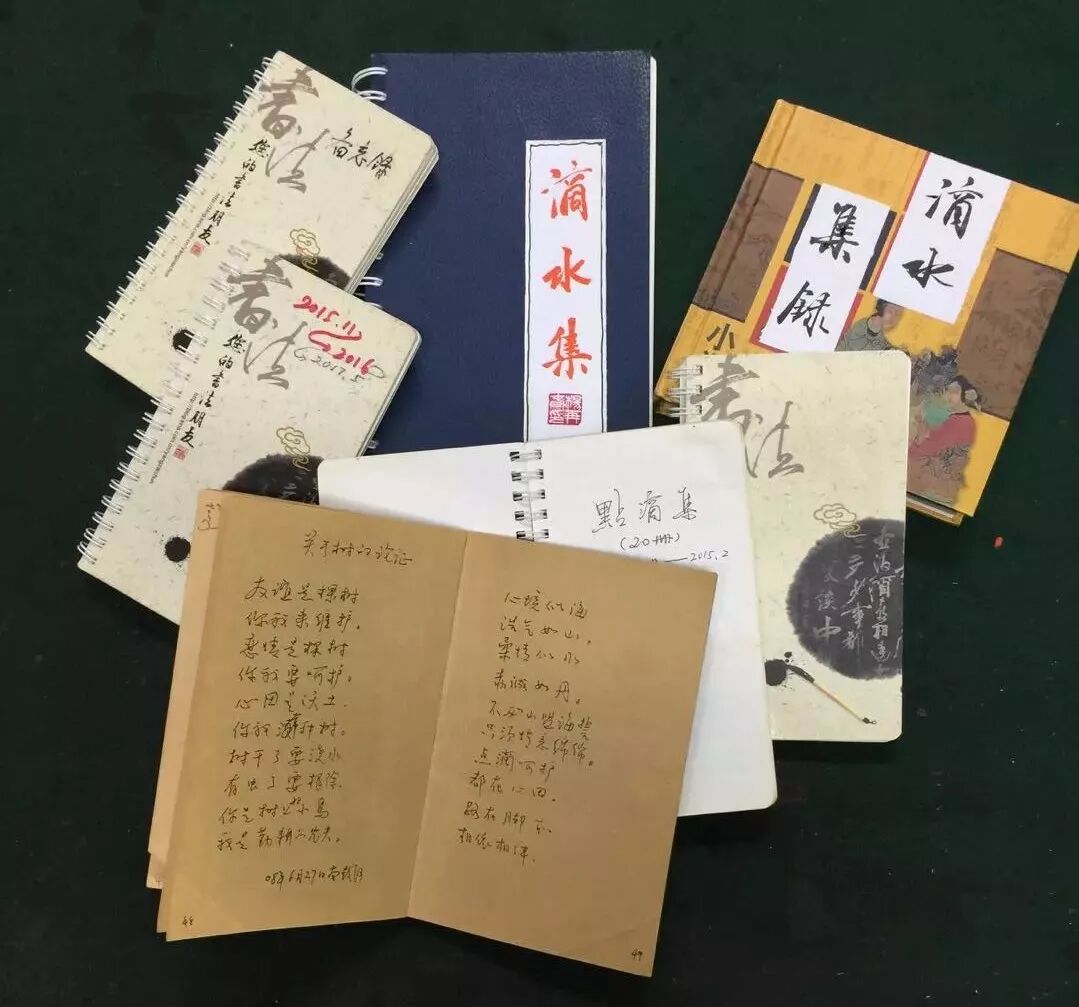 书法
备忘录
您的书法朋友
书法
2015.11
2016
2017.5
您的书法朋友
滴水集
滴水
集录
小
书法
點滴集
(20册)
2015.2
关于树的论证
友谊是棵树
你我来维护。
爱情是棵树
你我要呵护。
心田是沃土
你我灌种树。
树干了要浇水
有虫了要根除
你是树上鸟
我是勤耕的农夫。
05年6月27日
48
心境似海
浩气如山。
柔情似水
赤诚如丹。
不必山盟海誓
只须情意绵绵。
点滴呵护
都在心田。
路在脚下
相依相伴。
49